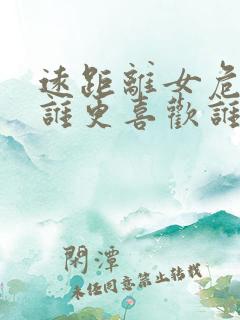 遠距離女危
誰更喜歡誰
閑潭
未經同意禁止轉載